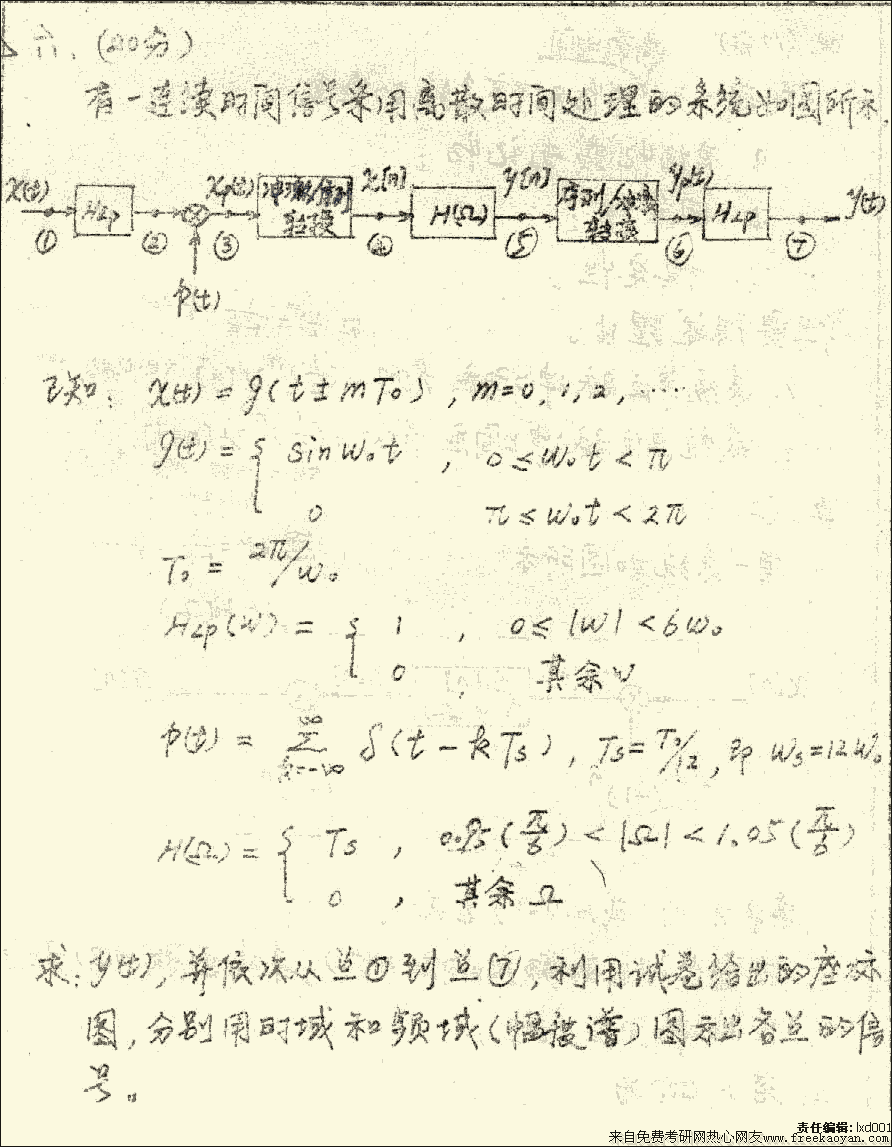 六、(20分)
有一连续时间信号采用离散时间处理的系统如图所示.
x(t) H_Lp x_p(t) 冲激/序列 转换 x[n] H(Ω) y[n] 序列/冲激 转换 y_p(t) H_Lp y(t)
① ② ③ ④ ⑤ ⑥ ⑦
p(t)
已知: x(t) = g(t ± mT₀) , m=0, 1, 2, ⋯
g(t) = { sin ω₀t , 0 ≤ ω₀t < π
0 π ≤ ω₀t < 2π
T₀ = 2π/ω₀
H_Lp(ω) = { 1 , 0 ≤ |ω| < 6ω₀
0 其余ω
p(t) = ∑_{k=-∞}^{∞} δ(t - kTs) , Ts = T₀/12 , 即 ωs = 12ω₀
H(Ω) = { Ts , 0.95(π/6) < |Ω| < 1.05(π/6)
0 , 其余 Ω
求: y(t), 并依次从点①到点⑦, 利用试卷给出的座标
图, 分别用时域和频域(幅度谱)图示出各点的信
号。
责任编辑: lxd001
来自免费考研网热心网友 www.freekaoyan.com